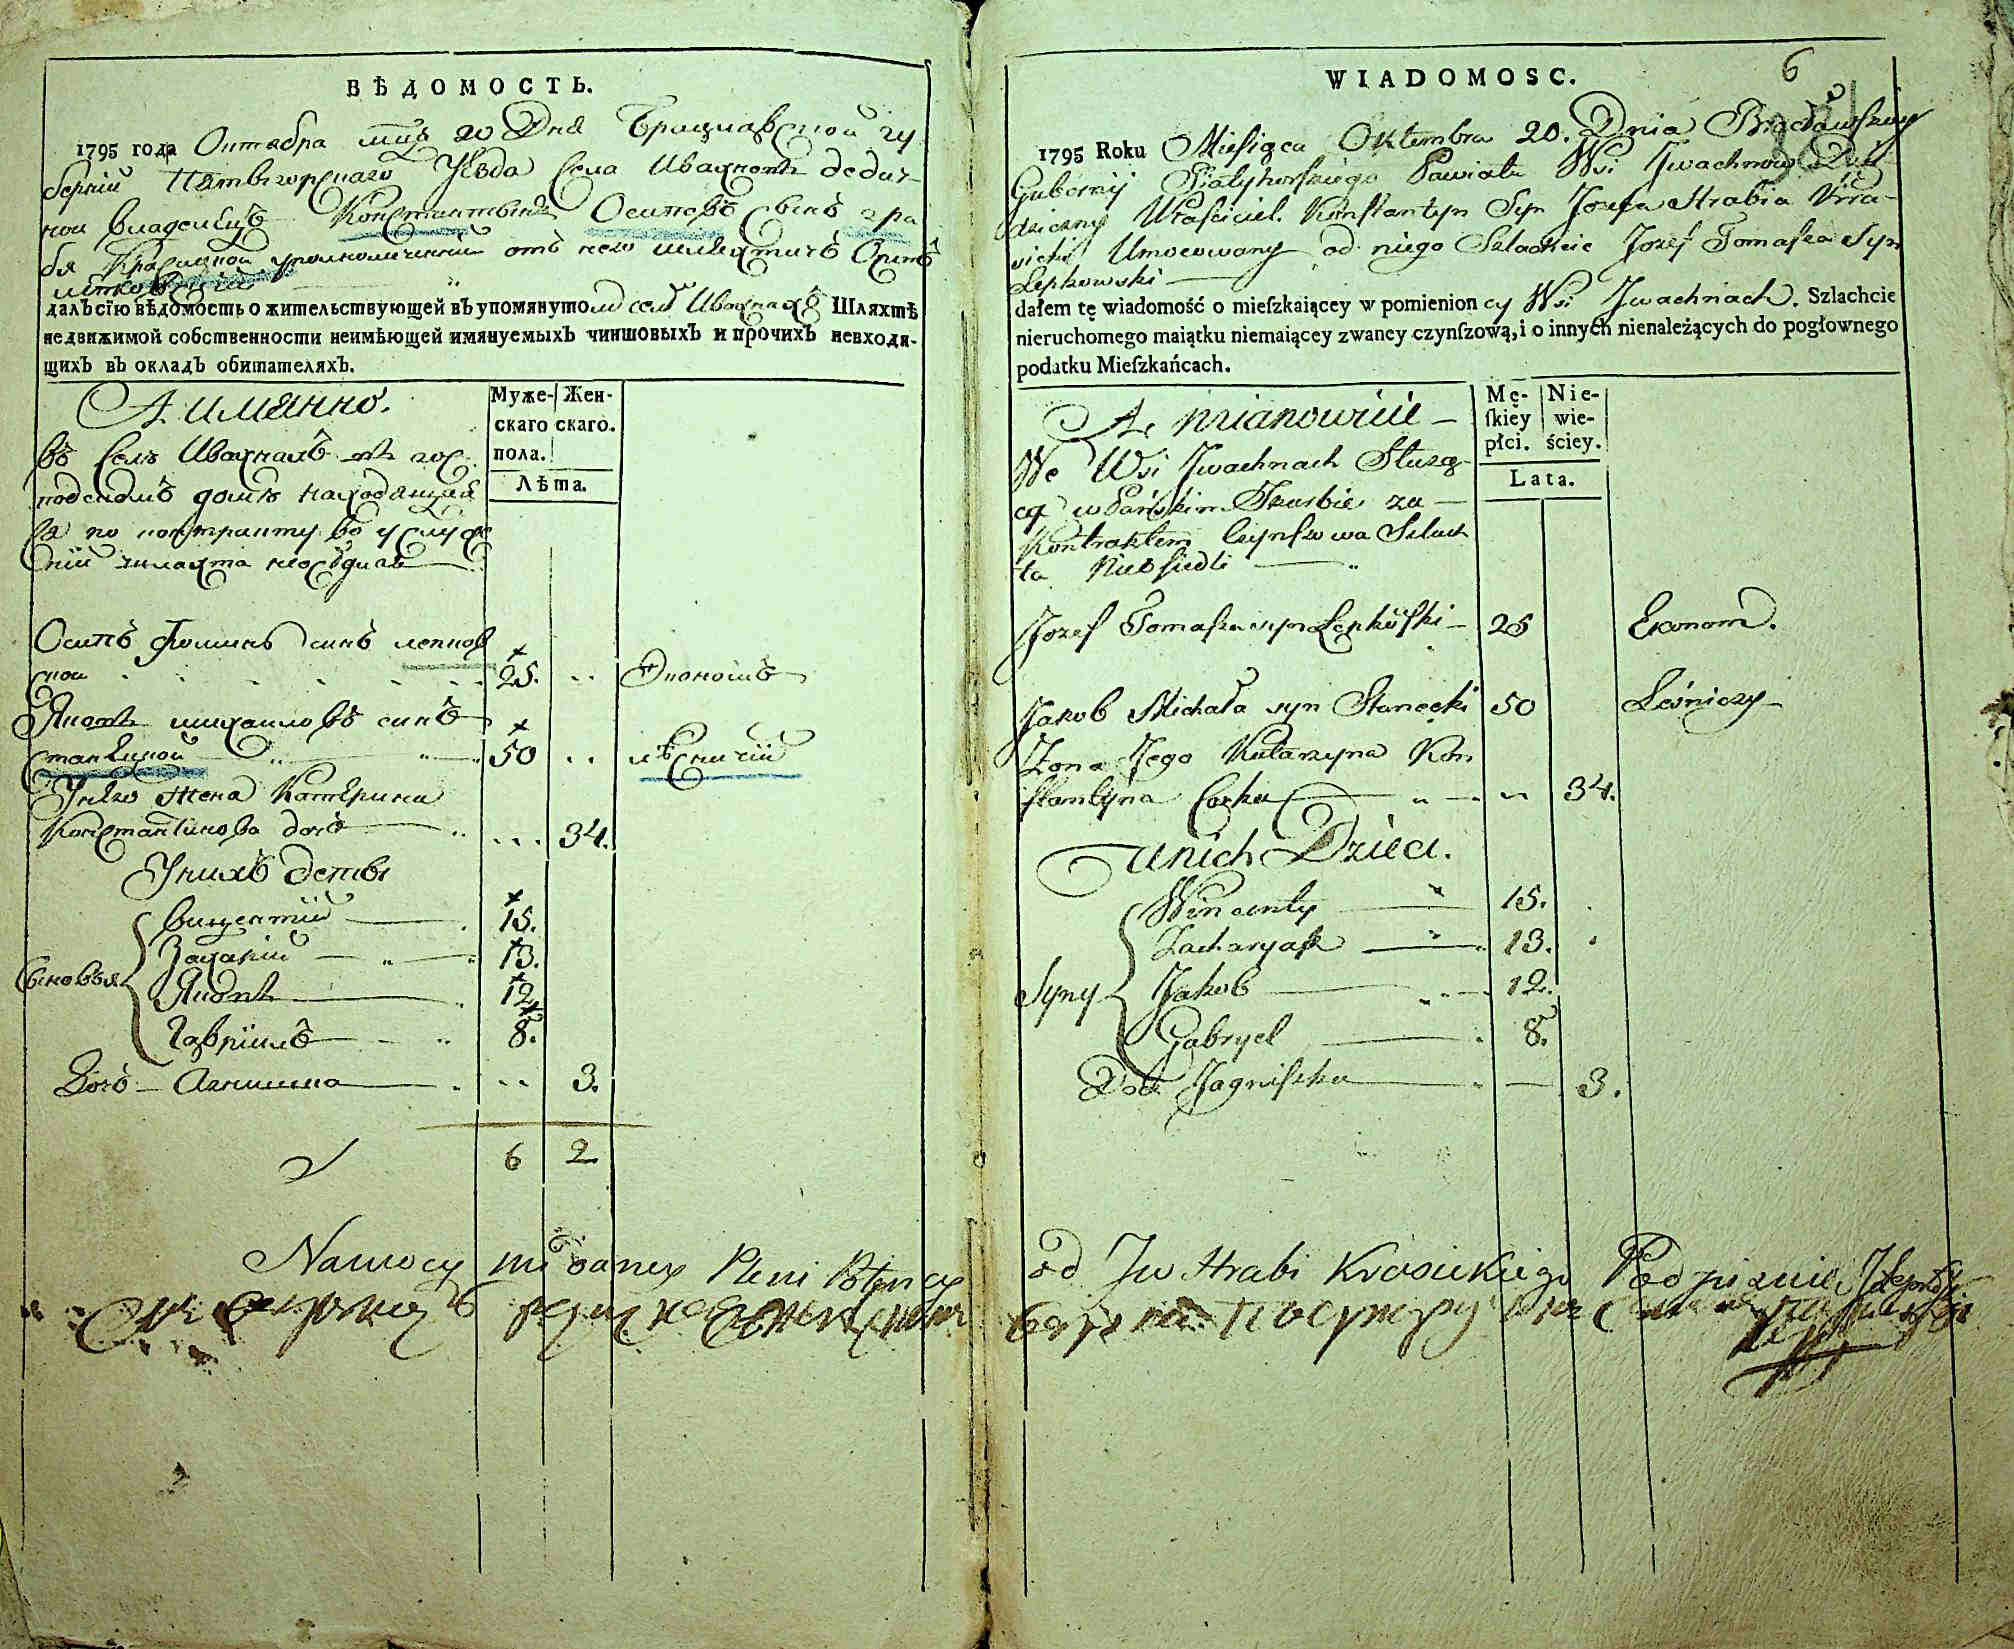 ВѢДОМОСТЬ.
1795 года Октября мцѣ 20 Дня Брацлавской гу
берніи Пятигорскаго Уѣзда села Ивахновъ дедич-
ной владелецъ Константинъ Осиповъ сынъ гра
бя Красицкой уполномоченный отъ него шляхтичъ Осипъ
далъ сїю вѣдомость о жительствующей въ упомянутомъ селѣ Ивахнахъ Шляхтѣ
недвижимой собственности неимѣющей имянуемыхъ чиншовыхъ и прочихъ невходя-
щихъ въ окладъ обитателяхъ.
А имянно.
Муже- Жен-
скаго скаго.
пола.
Лѣта.
въ селѣ Ивахнахъ въ гос
подскомъ домѣ находящая
ся по контракту во услуже
нии шляхта неоседлая
Осипъ Фоминъ синъ Лепков
ской 25. Экономъ
Яковъ михаиловъ синъ
станецкой 50 лѣсничій
У него жена Катерина
Константинова дочь 34.
У нихъ дети
Сыновья
Викентій 15.
Захарій 13.
Яковъ 12.
Гавріилъ 8.
Дочь Агнишка 3.
6 2
WIADOMOSC.
6
1795 Roku Miesiąca Oktembra 20. Dnia Bracławskiey
Gubernij Piatyhorskiego Powiatu Wsi Jwachnow Dzie
dziczny Właściciel Konstantyn Syn Jozefa Hrabia Kra-
sicki Umocowany od niego Szlachcic Jozef Tomasza Syn
Lepkowski
dałem tę wiadomość o mieſzkaiącey w pomienioncy Wsi Jwachnach. Szlachcie
nieruchomego maiątku niemaiącey zwaney czynſzową, i o innych nienależących do pogłownego
podatku Mieſzkańcach.
A, mianowicie
Mę- Nie-
ſkiéy wie-
płci. ściey.
Lata.
We Wsi Jwachnach Służą-
cą w Pańskim Skarbie za
Kontraktem Czynszowa Szlach
ta Nieosiedli
Jozef Tomasza syn Lepkoski 25 Ekonom.
Jakob Michała syn Stanecki 50 Leśniczy
Żona Jego Katarzyna Kon
stantyna Corka 34.
U nich Dzieci.
Syny
Wincenty 15.
Zacharyasz 13.
Jakob 12.
Gabryel 8.
Jagniszka 3.
Na mocy mi daney Pleni Potencyi od Jw Hrabi Krasickiego Podpisuie